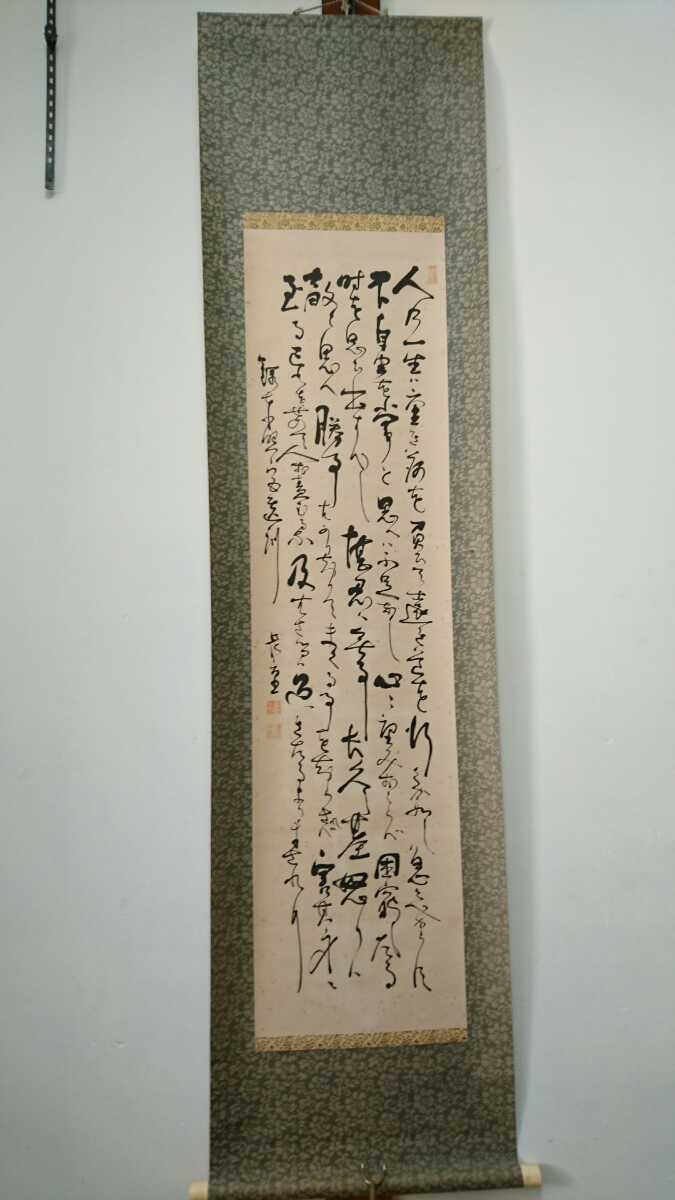 人乃一生ハ重き荷を負て遠き道を行可如し急くへからす
不自由を常と思へハ不足なし心に望みおこらバ困窮したる
時を思ひ出すへし堪忍ハ無事長久の基怒りハ
敵と思へ勝事はかり知りて末くる事を知らされハ害其身に
至る己れを責て人を責むるな及はさるハ過たるよりまされり
録東照公遺訓